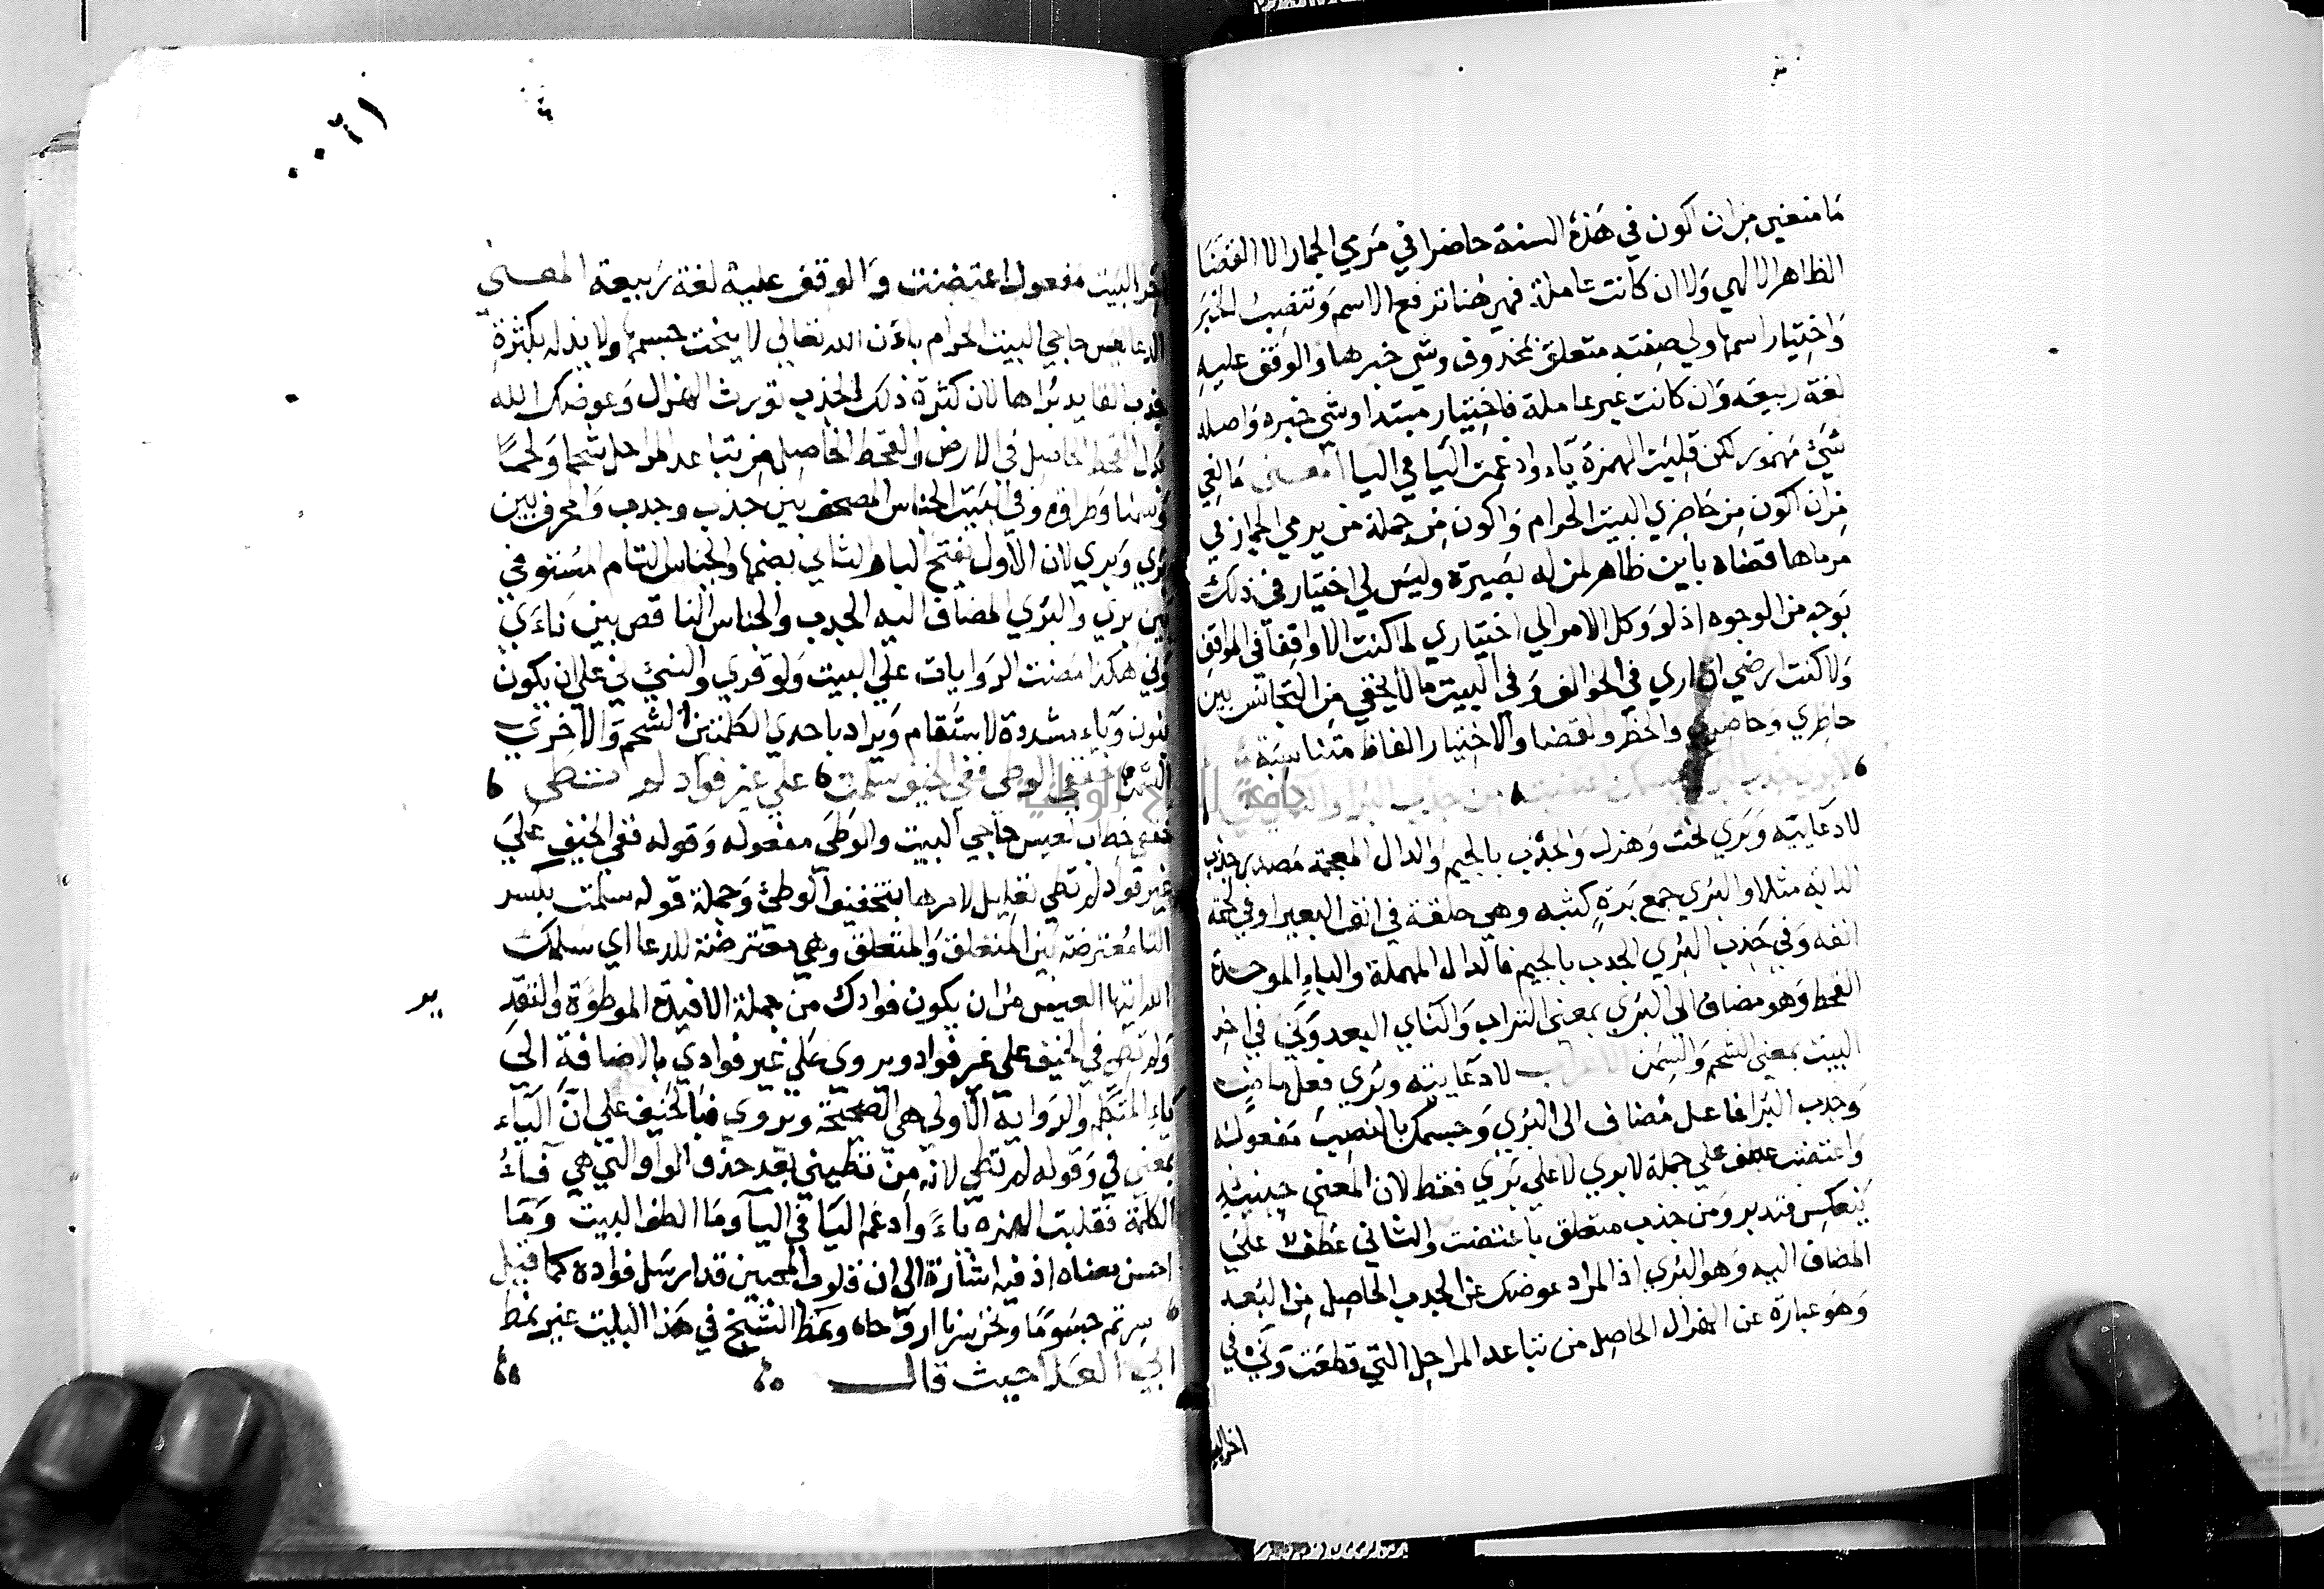 ما منعني من ان اكون في هذه السنة حاضرا في مرمي الجمار الا القضا
الظاهر الالهي ولا ان كانت عاملة فهي هنا ترفع الاسم وتنصب الخبر
واختيار اسمها ولي صفته متعلق بمحذوف وشي خبرها والوقف عليه
لغة ربيعة وان كانت غير عاملة فاختيار مبتدا وشي خبره واصله
شيئ مهموز لكن قلبت الهمزة ياء وادغمت اليا في اليا المعنى
من ان اكون من حاضري البيت الحرام واكون من جملة من يرمي الجمار في
مرماها قضاه باين ظاهر لمن له بصيرة وليس لي اختيار في ذلك
بوجه من الوجوه اذ لو وكل الامر الي اختياري لما كنت الا واقفا في المواقف
ولا كنت ارضي ان اري في الخوالف وفي البيت ما لا يخفي من التجانس بين
حاظري وحاضري والحظر والقضا والاختيار الفاظ متناسبة
لا دعايية وبري نحت وهزل والجذب بالجيم والدال المعجمة مصدر جذب
الدابة مثلا والبري جمع برة كثبه وهي حلقة في انف البعير او في لحمة
انفه وفي جذب البري الجدب بالجيم فالدال المهملة والباء الموحدة
القحط وهو مضاف الى البري بمعنى التراب والناي البعد وني في اخر
البيت بمعنى الشحم والسمن لا دعايية وبري فعل ماضٍ
وجذب البرا فاعل مضاف الى البري وجسمك بالنصب مفعوله
واعتضت عطف علي جملة لا بري لا علي بري فقط لان المعني حينيذ
ينعكس فتدبر ومن جذب متعلق باعتضت والثاني عطف علي
المضاف اليه وهو البري اذ المراد عوضك عن الجدب الحاصل من البعد
وهو عبارة عن الهزال الحاصل من تباعد المراحل التي قطعت وني في
اخر البيت
اخر البيت مفعول اعتضت والوقف علية لغة ربيعة المعنى
الدعا لعيس حاجي البيت الحرام باءن الله تعالي لا ينحت جسمها ولا يذله بكثرة
جذب القايد براها لان كثرة ذلك الجذب تورث الهزال وعوضك الله
بدل القحط الحاصل في الارض والقحط الحاصل من تباعد المراحل شحما ولحما
وسمنا وطراوة وفي البيت الجناس المصحف بين جذب وجدب والمحرف بين
بري وبري لان الاول بفتح الباء والثاني بضمها والجناس التام المستوفي
بين بري والبري المضاف اليه الجدب والجناس الناقص بين ناءي
وني هكذا مضت الروايات علي البيت ولو قري والنيئ ني علي ان يكون
بنون وياء مشددة لاستقام ويراد باحدي الكلمتين الشحم والاخري
السمن خففي الوطئ ففي الخيف سلمت علي غير فواد لم تطي
خففي خطاب لعيس حاجي البيت والوطئ مفعوله وقوله ففي الخيف علي
غير فواد لم تطي تعليل لامرها بتخفيف الوطئ وجملة قوله سلمت بكسر
التا معترضة بين المتعلق والمتعلق وهي معترضة للدعا اي سلمك
الله ايتها العيس من ان يكون فوادك من جملة الافيدة الموطوة والتقدير
ولم تطي في الخيف على غير فواد ويروى علي غير فوادي بالاضافة الي
ياء المتكلم والرواية الاولى هي الصحيحة وتروي فبالخيف علي ان الباء
بمعني في وقوله لم تطي لانه من تطيني بعد حذف الواو التي هي فاءُ
الكلمة فقلبت الهمزه ياءً وادغم اليا في اليا وما الطف البيت وما
احسن معناه اذ فيه اشارة الى ان قلوب المحبين قد ارسل فواده كما قيل
سرتم جسوما ونحن سرنا ارواحا ونمط الشيخ في هذا البيت غير نمط
ابي العلا حيث قال